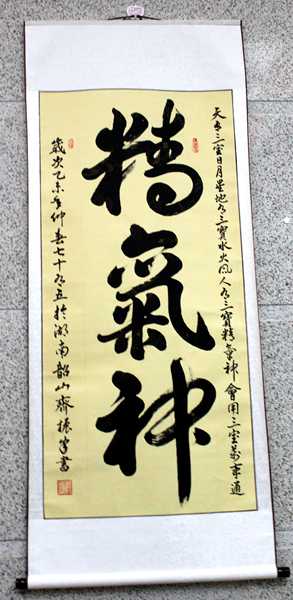 天有三宝日月星地有三寳水火风人有三寳精氣神會用三宝萬事通
精氣神
歲次乙未年仲春七十有五於湖南韶山齊振書